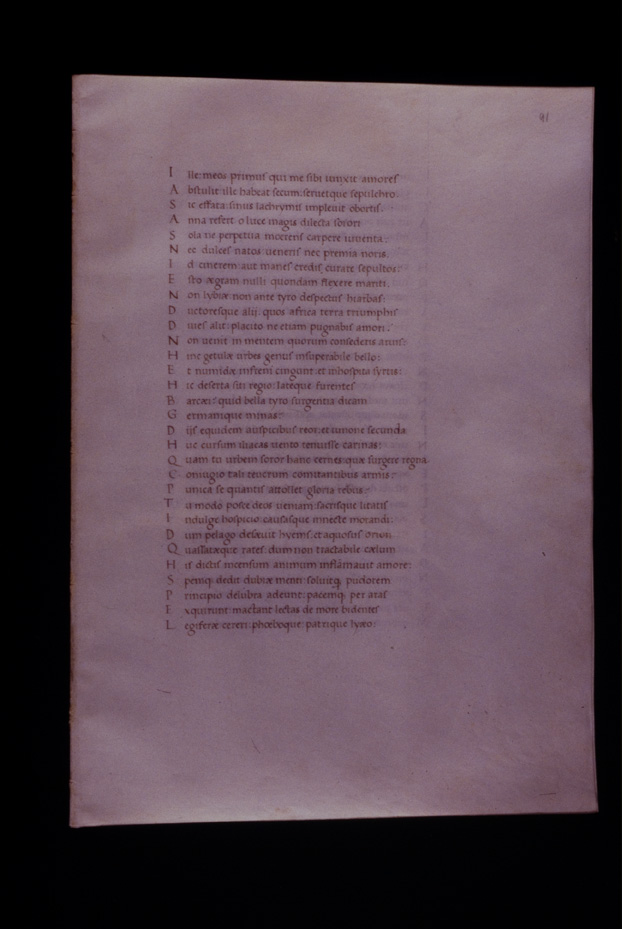 91
Ille: meos primus qui me sibi iunxit amores
Abstulit: ille habeat secum: seruetque sepulchro.
Sic effata: sinus lachrymis impleuit obortis.
Anna refert: o luce magis dilecta sorori
Sola ne perpetua moerens carpere iuuenta.
Nec dulces natos ueneris nec premia noris.
Id cinerem aut manes credis curare sepultos:
Esto ægram nulli quondam flexere mariti.
Non lybiæ non ante tyro despectus hiarbas:
Ductoresque alij: quos africa terra triumphis
Diues alit: placito ne etiam pugnabis amori:
Non uenit in mentem quorum consederis aruis:
Hinc getulæ urbes genus insuperabile bello:
Et numidæ infreni cingunt: et inhospita syrtis:
Hic deserta siti regio: lateque furentes
Barcæi: quid bella tyro surgentia dicam
Germanique minas:
Dijs equidem auspicibus reor: et iunone secunda
Huc cursum iliacas uento tenuisse carinas:
Quam tu urbem soror hanc cernes: quæ surgere regna
Coniugio tali: teucrum comitantibus armis:
Punica se quantis attollet gloria rebus:
Tu modo posce deos ueniam: sacrisque litatis
Indulge hospicio causasque innecte morandi:
Dum pelago desæuit hyems: et aquosus orion
Quassatæque rates: dum non tractabile cælum
His dictis incensum animum inflãmauit amore:
Spemq; dedit dubiæ menti: soluitq; pudorem
Principio delubra adeunt: pacemq; per aras
Exquirunt: mactant lectas de more bidentes
Legiferæ cereri: phœboque: patrique lyæo: